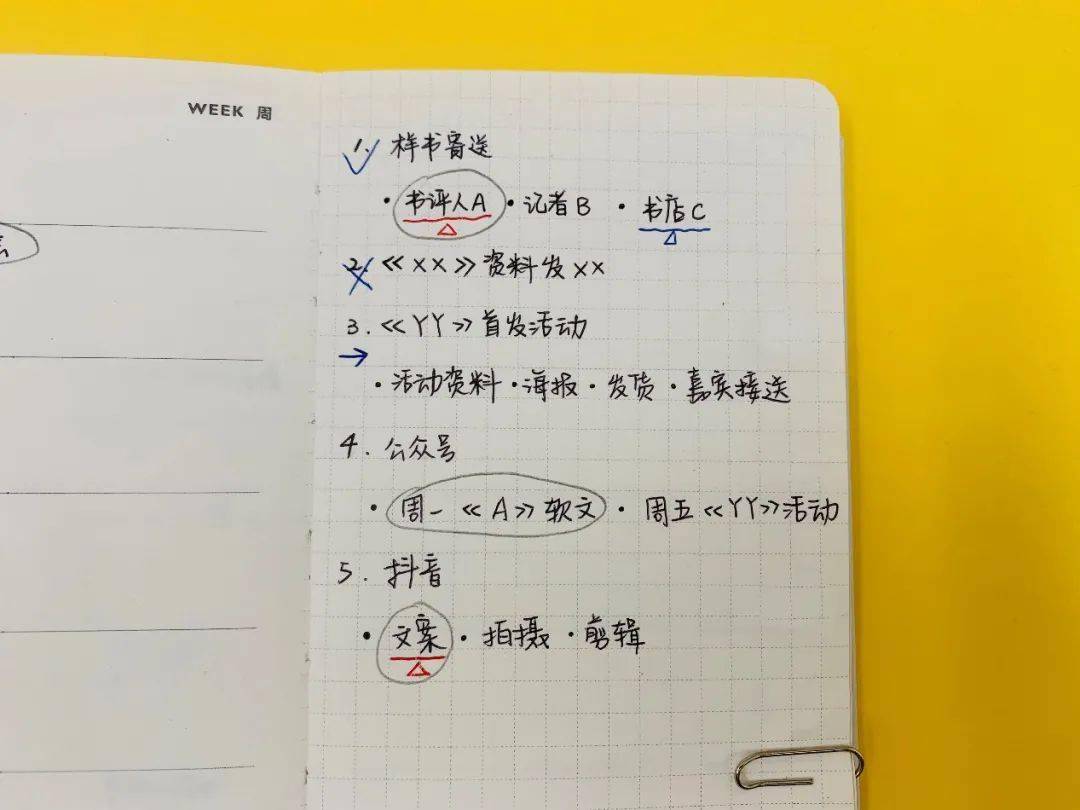 WEEK 周
1. 样书寄送
·书评人A ·记者B ·书店C
2. 《XX》资料发XX
3. 《YY》首发活动
·活动资料 ·海报 ·发货 ·嘉宾接送
4. 公众号
·周一《A》软文 ·周五《YY》活动
5. 抖音
·文案 ·拍摄 ·剪辑